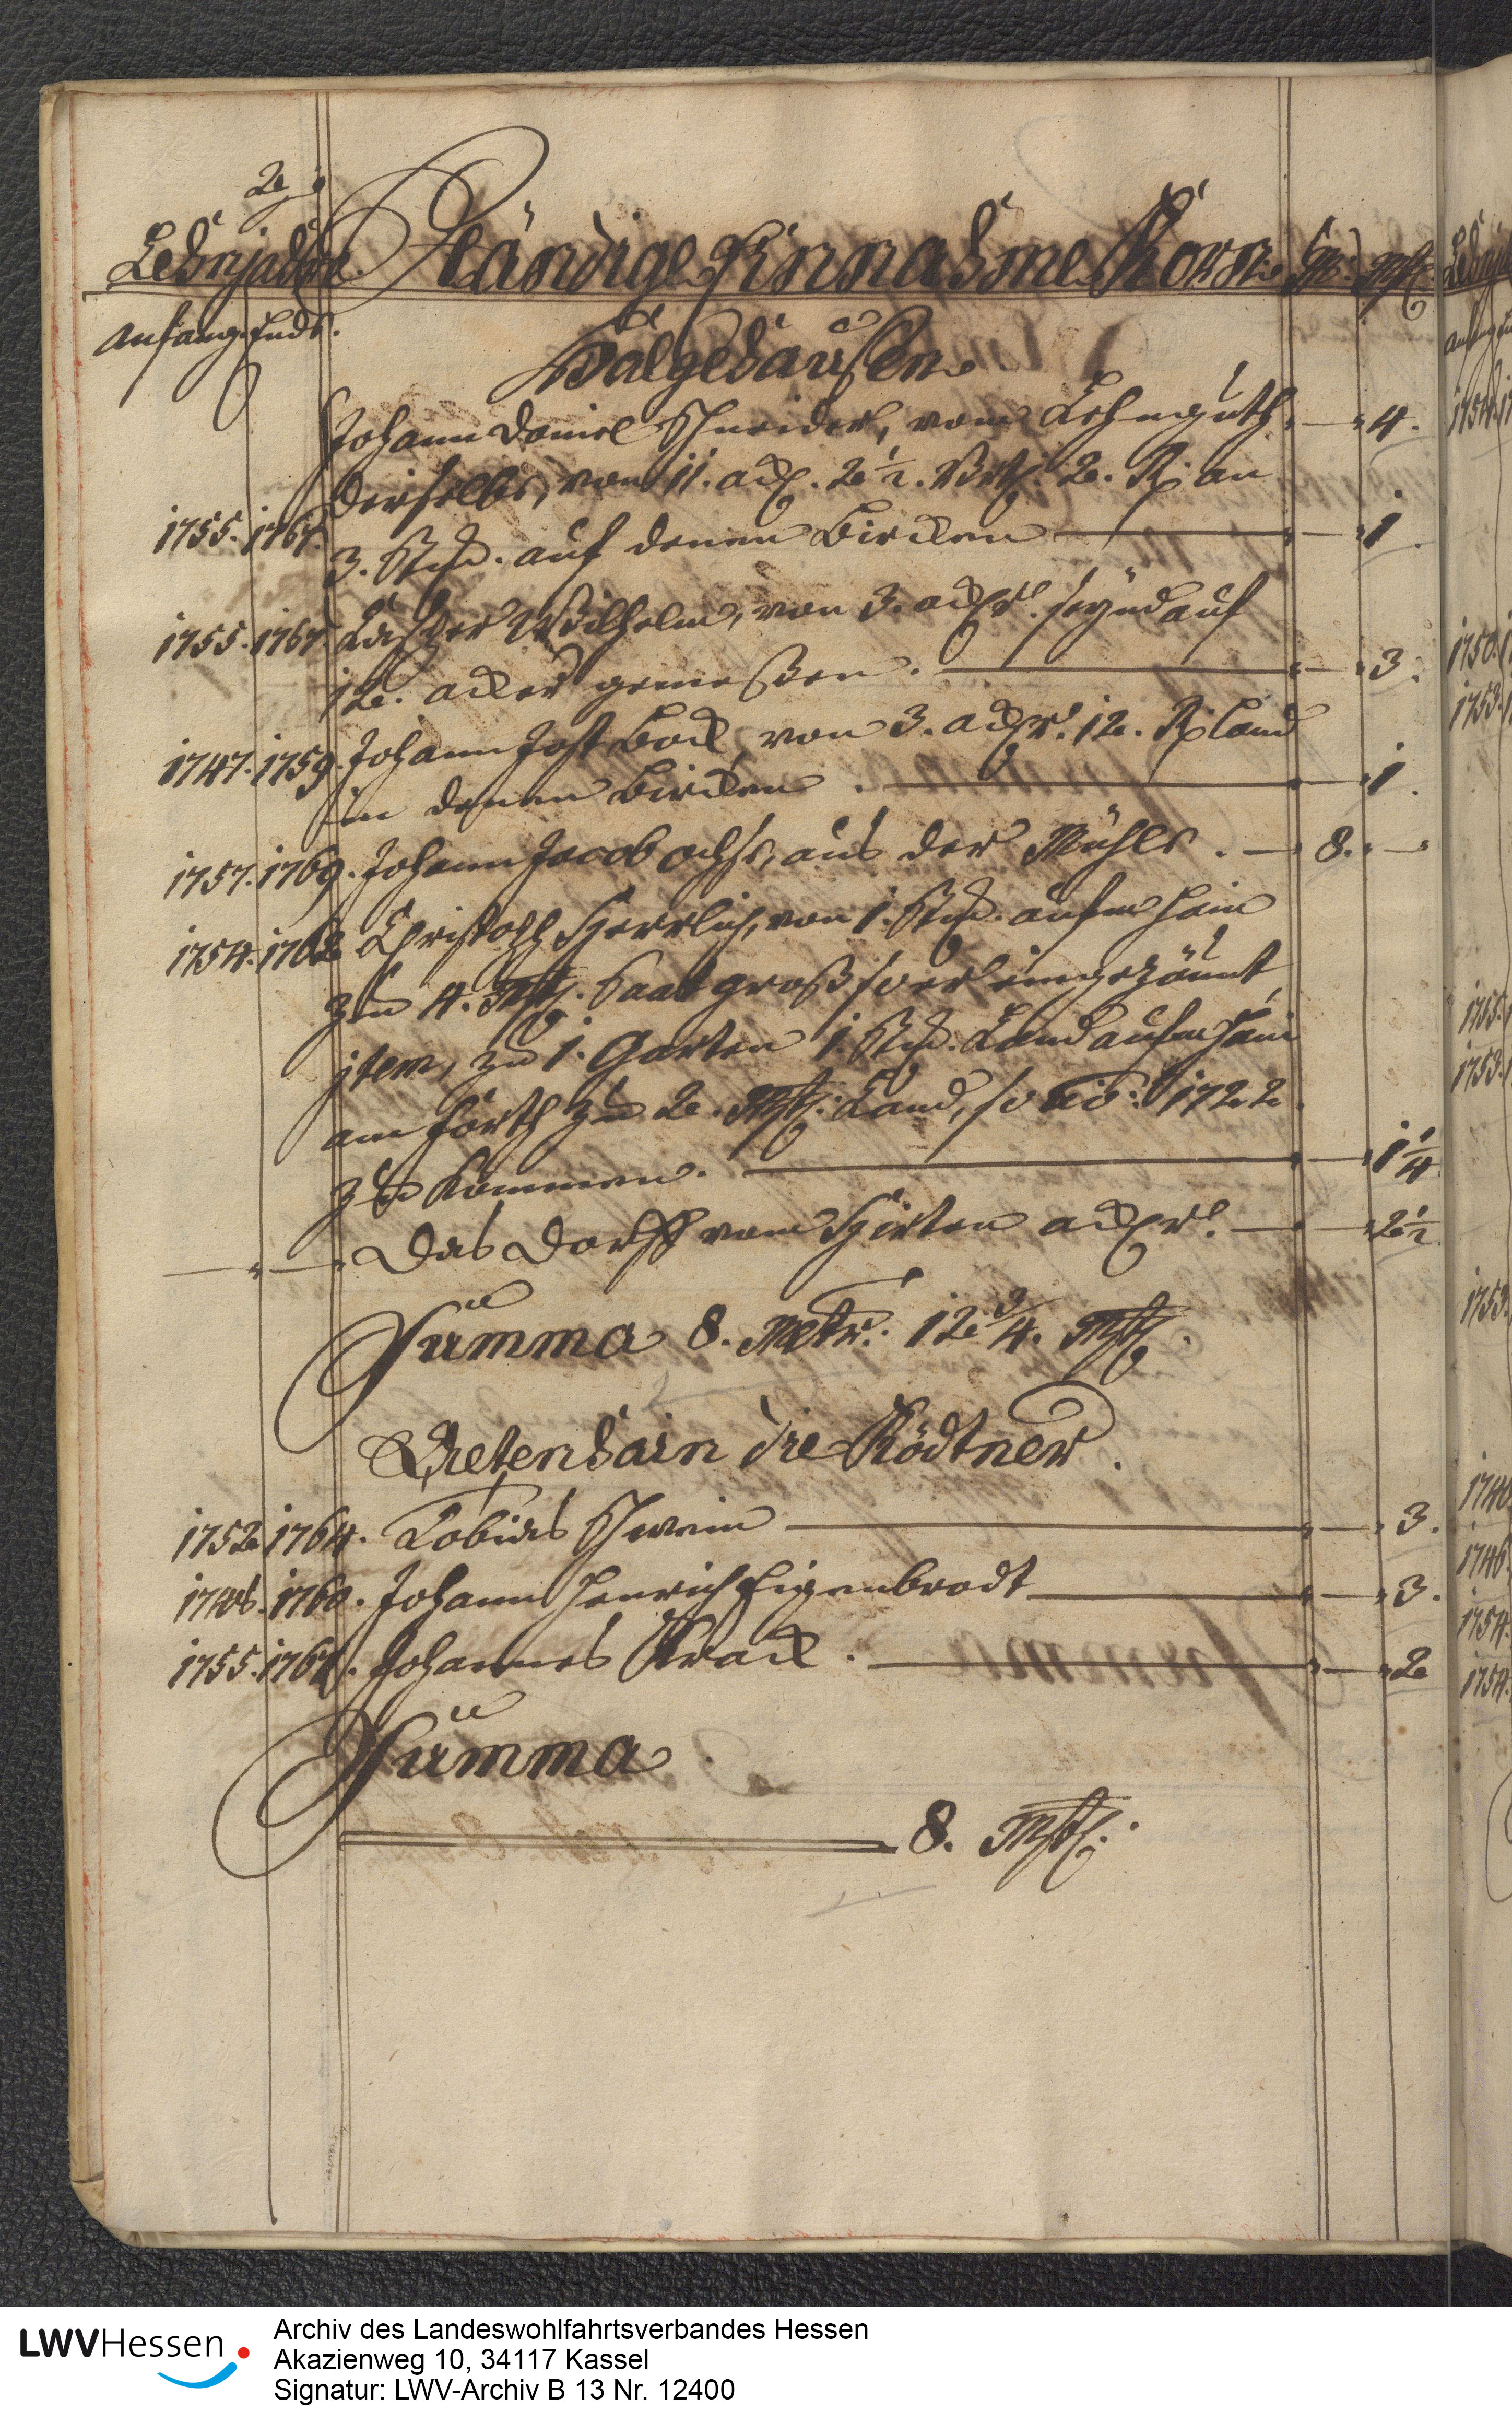 Lehnjahre. Ständige Einnahme Korn
Anfang. Ende.
Balgehausen
Johann Daniel Schneider, vom Lehnguth. 4.
Derselbe, von 11. ack. 2 1/2. Vrtl. 2. R. an
1755. 1767. 3. Stck. auf denen Bircken 1.
1755. 1767. Casper Wilhelm, von 3. acker seynd auf
12. acker gemeßen. 3.
1747. 1759. Johann Jost Bock, von 3. acker. 12. R. Land
in denen Bircken. 1.
1757. 1769. Johann Jacob Ochse, aus der Mühle. 8.
1754. 1762 Christoph Herrlich, von 1. Stck. aufm Hain
zu 4. Mtz. Saat groß so er eingezäunt
jtem, zu 1. Garten 1. Stck. Land aufm Hain
am Förth zu 2. Mtz. Land, so 1722
zu kommen. 1 1/4
Das Dorff vom Hirten acker. 2 1/2
Summa 8. 12 3/4. Mtz.
Dietenhain die Rödtner.
1752. 1764. Tobias Schwein 3.
1760. Johann Henrich Eigenbrodt 3.
1755. 1767. Johannes Krack. 2
Summa
8. Mtz.
LWVHessen
Archiv des Landeswohlfahrtsverbandes Hessen
Akazienweg 10, 34117 Kassel
Signatur: LWV-Archiv B 13 Nr. 12400